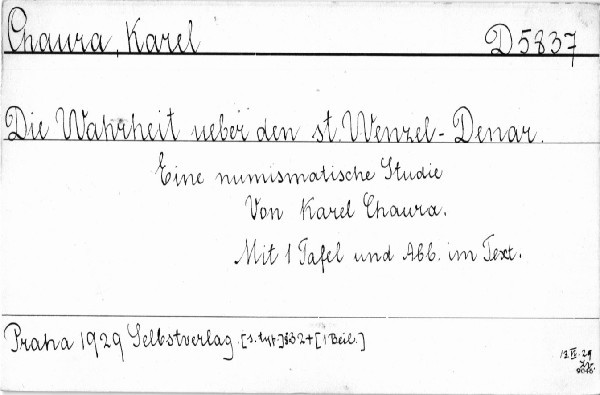 Chaura, Karel D 5837
Die Wahrheit ueber den st. Wenzel-Denar.
Eine numismatische Studie
Von Karel Chaura.
Mit 1 Tafel und Abb. im Text.
Praha 1929 Selbstverlag. [s. typ.] 32+[1 Beil.]